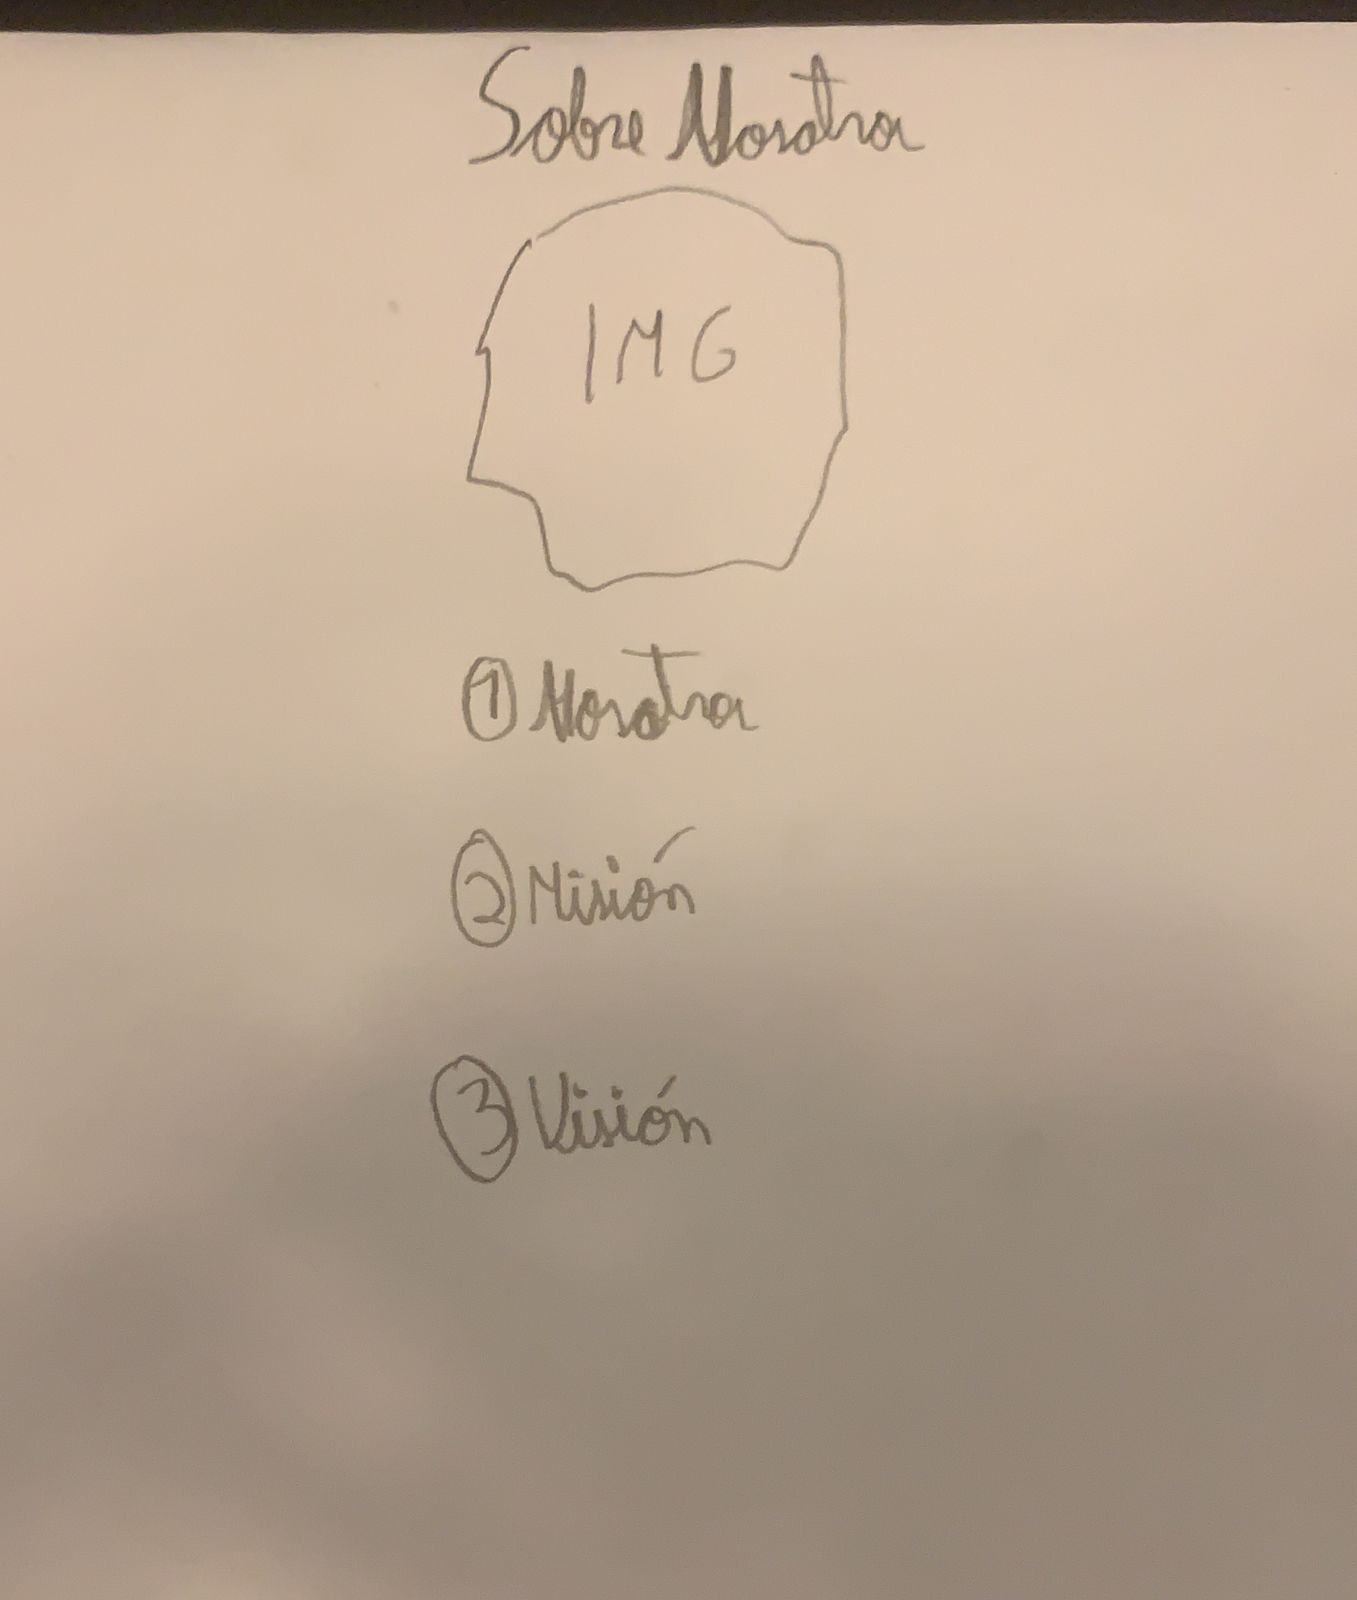 Sobre Nosotra
IMG
① Nosotra
② Misión
③ Visión